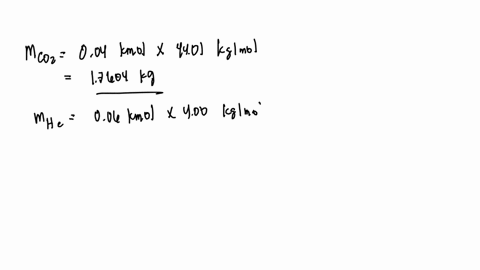 mCO2 = 0.04 kmol x 44.01 kg/mol
= 1.7604 kg
mHe = 0.06 kmol x 4.00 kg/mo